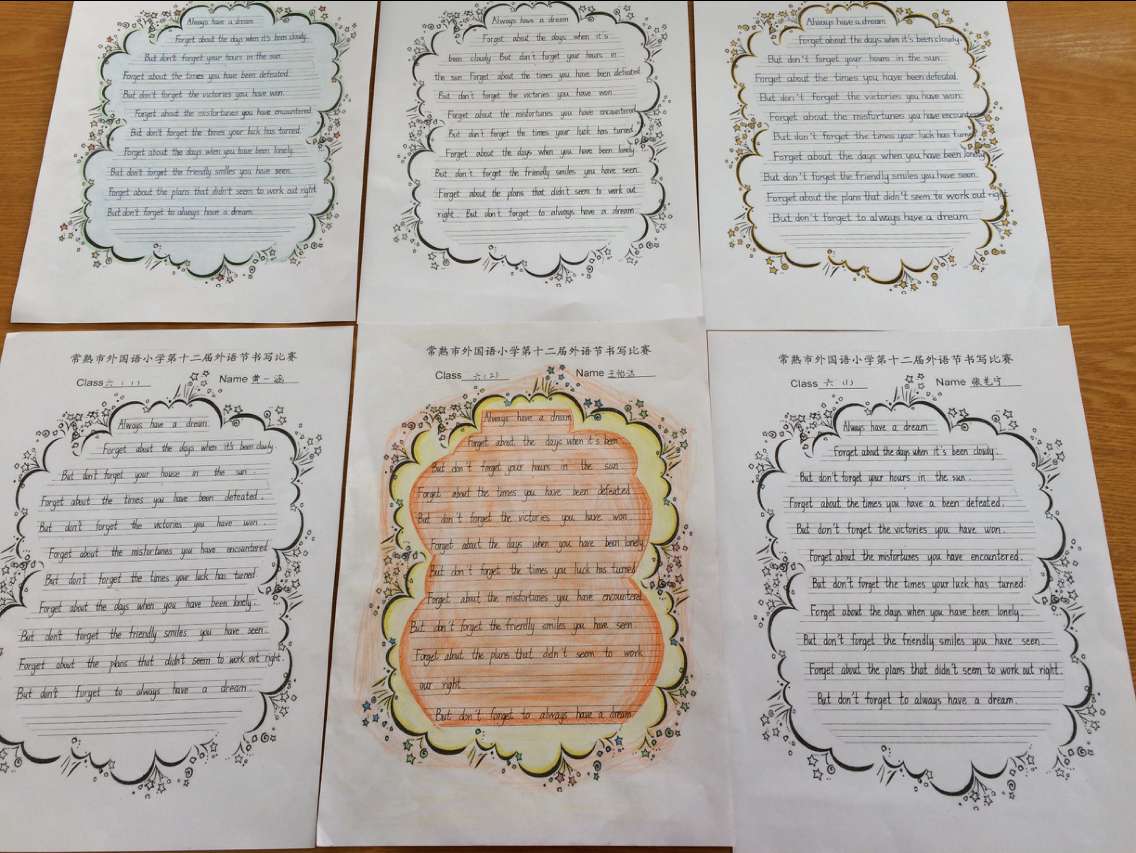 Always have a dream
Forget about the days when it's been cloudy.
But don't forget your hours in the sun.
Forget about the times you have been defeated.
But don't forget the victories you have won.
Forget about the misfortunes you have encountered
But don't forget the times your luck has turned.
Forget about the days when you have been lonely.
But don't forget the friendly smiles you have seen.
Forget about the plans that didn't seem to work out right
But don't forget to always have a dream.
Always have a dream
Forget about the days when it's
been cloudy But don't forget your hours in
the sun Forget about the times you have been defeated
But don't forget the victories you have won
Forget about the misfortunes you have encountered
But don't forget the times your luck has turned
Forget about the days when you have been lonely
But don't forget the friendly smiles you have seen
Forget about the plans that didn't seem to work out
right. But don't forget to always have a dream
Always have a dream
Forget about the days when it's been cloudy.
But don't forget your hours in the sun.
Forget about the times you have been defeated.
But don't forget the victories you have won.
Forget about the misfortunes you have encount
But don't forget the times your luck has turn
Forget about the days when you have been lonely
But don't forget the friendly smiles you have seen.
Forget about the plans that didn't seem to work out right
But don't forget to always have a dream.
常熟市外国语小学第十二届外语节书写比赛
Class 六(1) Name 黄一涵
Always have a dream.
Forget about the days when it's been cloudy.
But don't forget your house in the sun.
Forget about the times you have been defeated.
But don't forget the victories you have won.
Forget about the misfortunes you have encountered
But don't forget the times your luck has turned
Forget about the days when you have been lonely.
But don't forget the friendly smiles you have seen.
Forget about the plans that didn't seem to work out right.
But don't forget to always have a dream.
常熟市外国语小学第十二届外语节书写比赛
Class 六(2) Name 王怡洁
Always have a dream
Forget about the days when it's been
But don't forget your hours in the sun
Forget about the times you have been defeated
But don't forget the victories you have won
Forget about the days when you have been lonely
But don't forget the times you luck has turned
Forget about the misfortunes you have encountered
But don't forget the friendly smiles you have seen
Forget about the plans that didn't seem to work
our right.
But don't forget to always have a dream
常熟市外国语小学第十二届外语节书写比赛
Class 六(1) Name 张
Always have a dream
Forget about the days when it's been cloudy.
But don't forget your hours in the sun.
Forget about the times you have a been defeated.
But don't forget the victories you have won.
Forget about the misfortunes you have encountered.
But don't forget the times your luck has turned.
Forget about the days when you have been lonely.
But don't forget the friendly smiles you have seen.
Forget about the plans that didn't seem to work out right.
But don't forget to always have a dream.